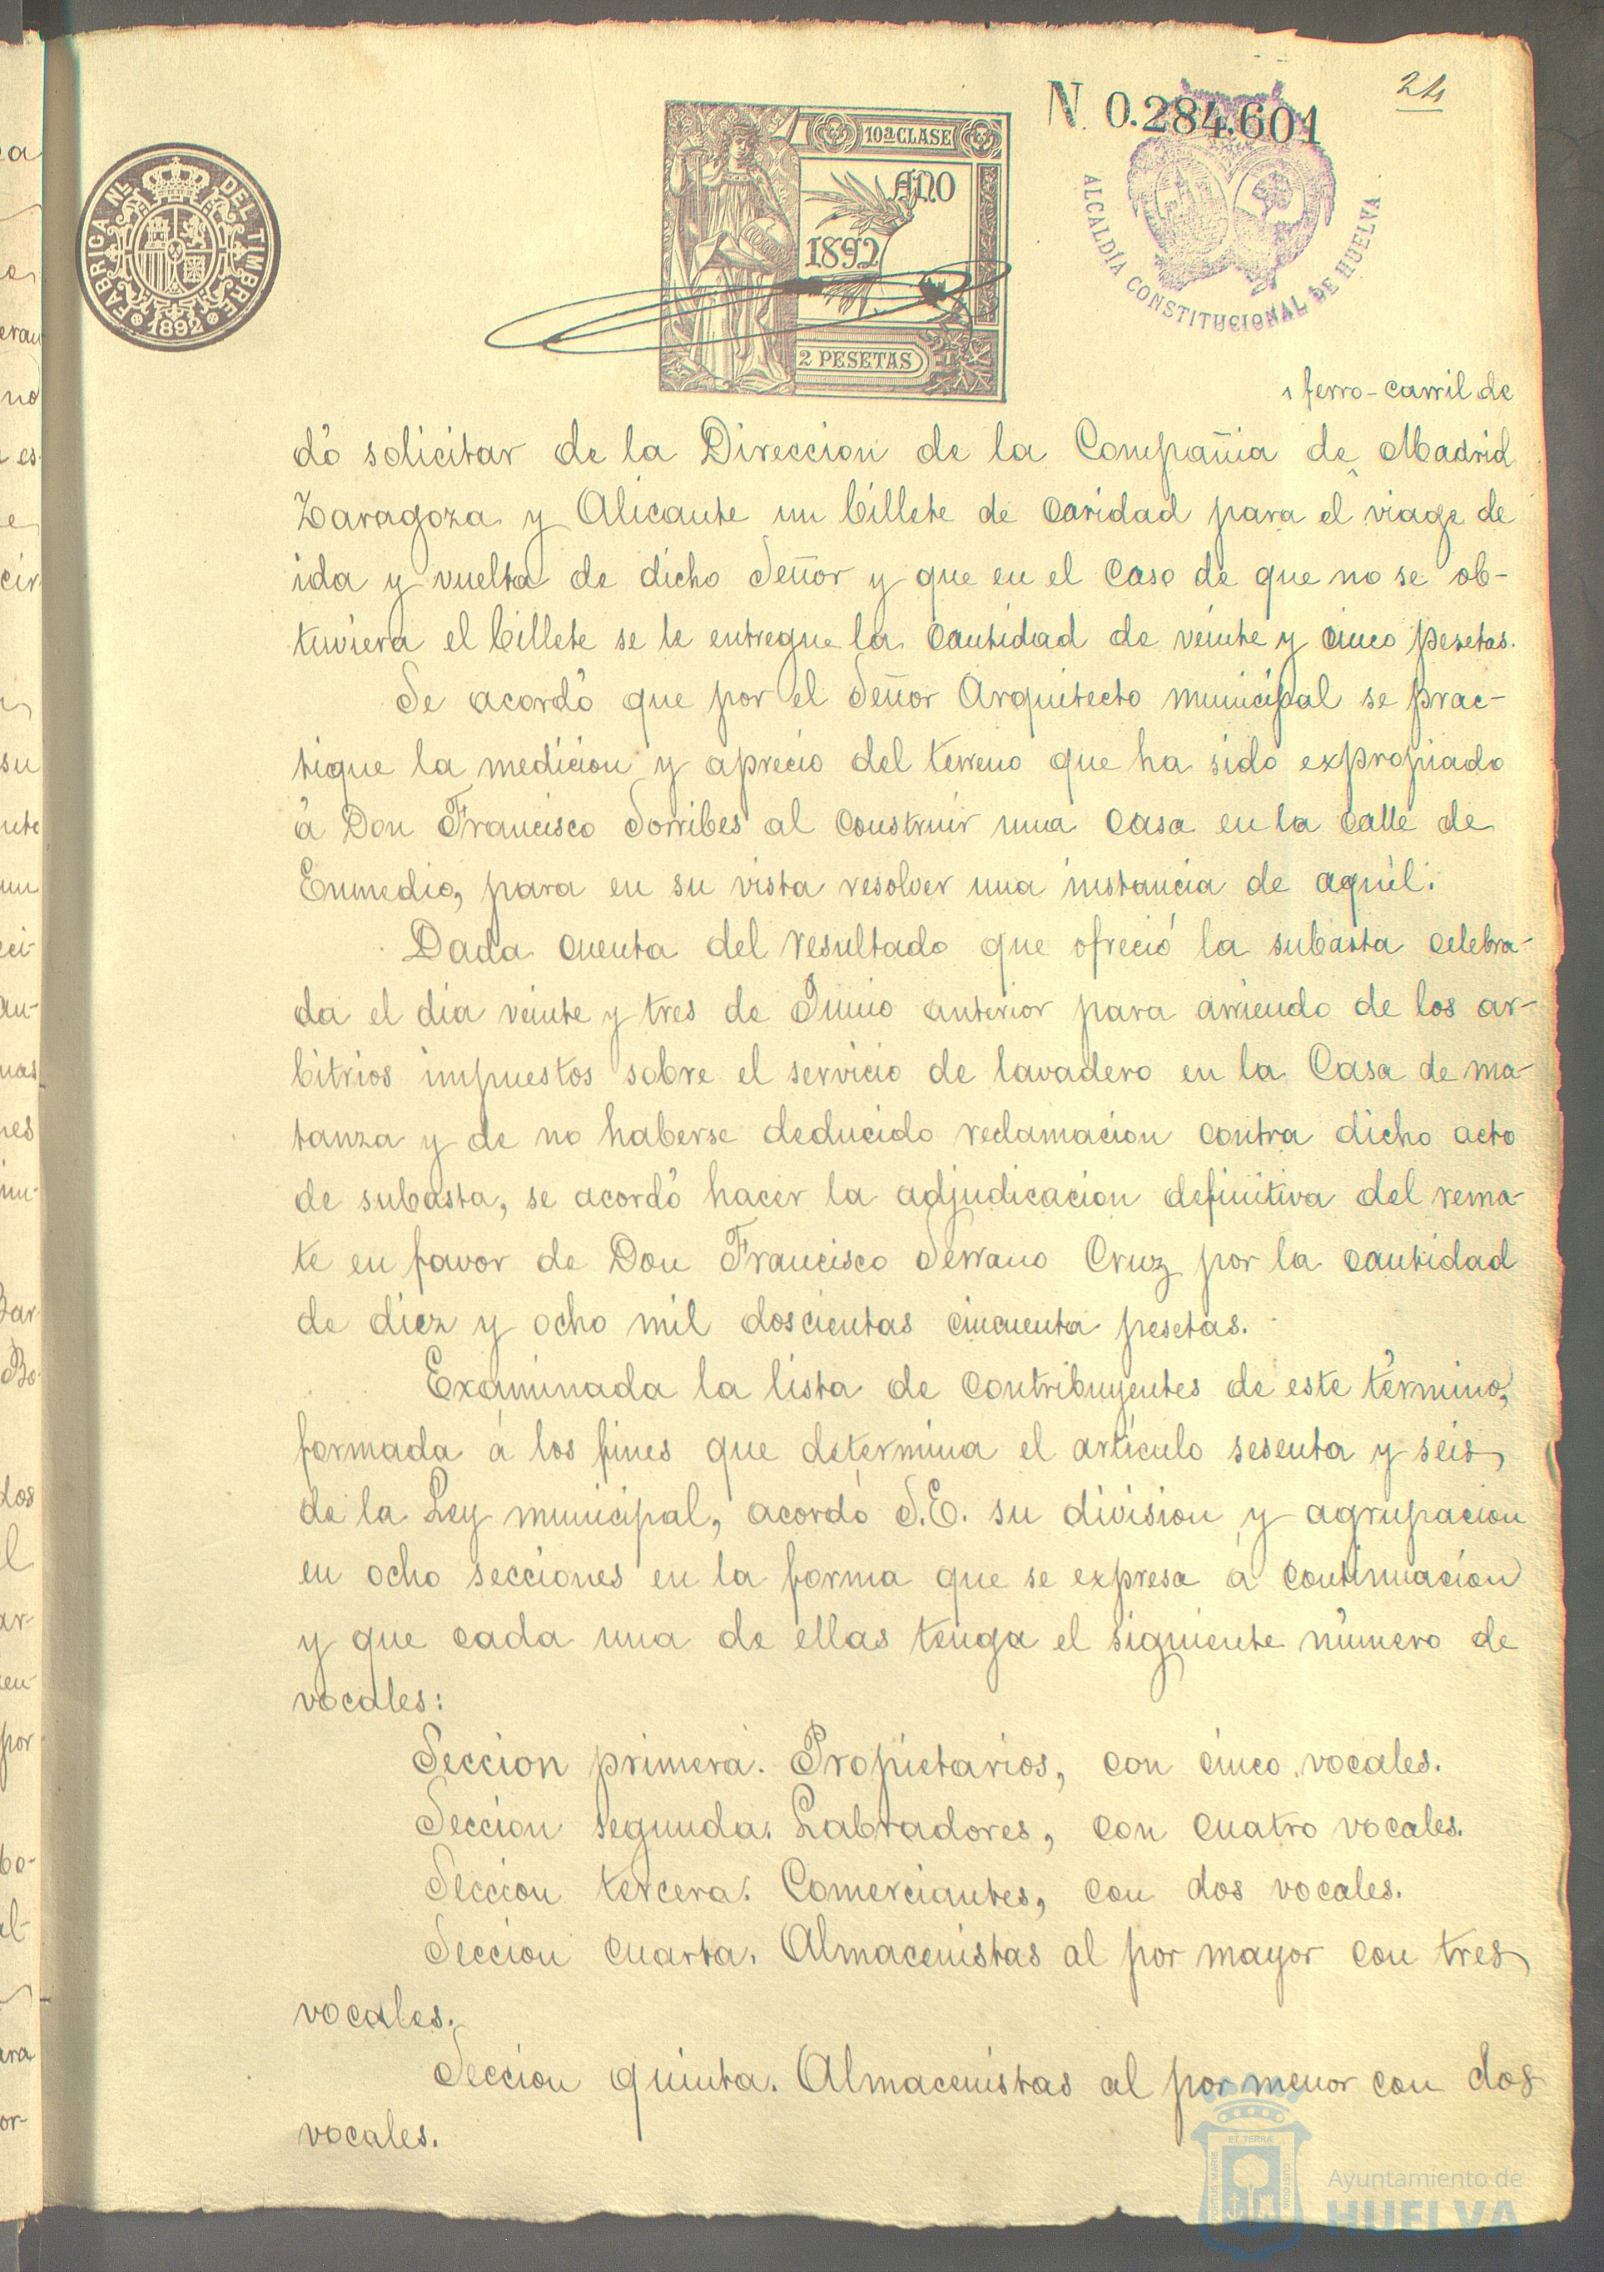 24
N. 0.284.601
10ª CLASE
AÑO
1892
2 PESETAS
FABRICA NL. DEL TIMBRE
1892
ALCALDÍA CONSTITUCIONAL DE HUELVA
ferro-carril de
dó solicitar de la Direccion de la Compañia de Madrid
Zaragoza y Alicante un billete de caridad para el viage de
ida y vuelta de dicho Señor y que en el caso de que no se ob-
tuviera el billete se le entregue la cantidad de veinte y cinco pesetas.
Se acordó que por el Señor Arquitecto municipal se prac-
tique la medicion y aprecio del terreno que ha sido expropiado
á Don Francisco Sorribes al construir una casa en la calle de
Enmedio, para en su vista resolver una instancia de aquél.
Dada cuenta del resultado que ofreció la subasta celebra-
da el dia veinte y tres de Junio anterior para arriendo de los ar-
bitrios impuestos sobre el servicio de lavadero en la Casa de ma-
tanza y de no haberse deducido reclamacion contra dicho acto
de subasta, se acordó hacer la adjudicacion definitiva del rema-
te en favor de Don Francisco Serrano Cruz por la cantidad
de diez y ocho mil doscientas cincuenta pesetas.
Examinada la lista de contribuyentes de este término,
formada á los fines que determina el artículo sesenta y seis
de la Ley municipal, acordó S.E. su division y agrupacion
en ocho secciones en la forma que se expresa á continuacion
y que cada una de ellas tenga el siguiente número de
vocales:
Seccion primera. Propietarios, con cinco vocales.
Seccion segunda. Labradores, con cuatro vocales.
Seccion tercera. Comerciantes, con dos vocales.
Seccion cuarta. Almacenistas al por mayor con tres
vocales.
Seccion quinta. Almacenistas al por menor con dos
vocales.
Ayuntamiento de
HUELVA